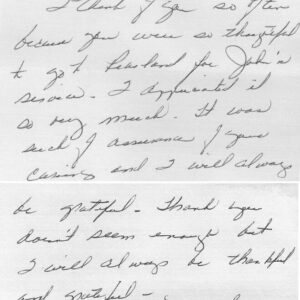 I think of you so often
because you were so thoughtful
to go to Pearland for John's
service. I appreciated it
so very much. It was
such of assurance of your
caring and I will always
be grateful - Thank you
doesn't seem enough but
I will always be thankful
and grateful -